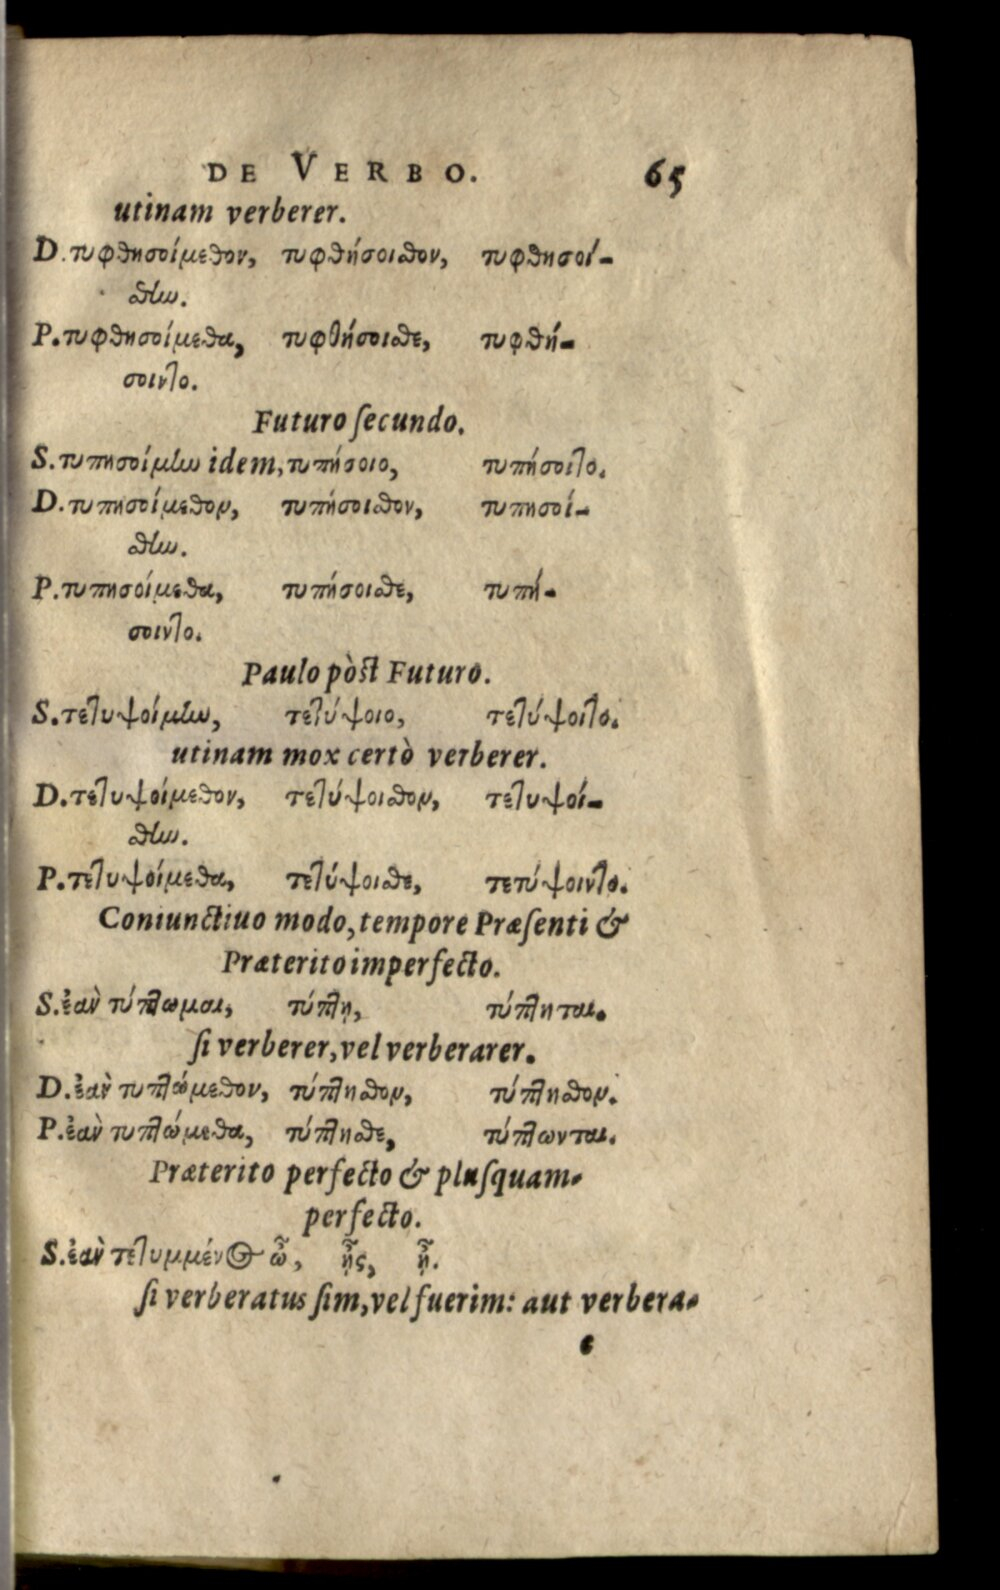 DE VERBO. 65
utinam verberer.
D. τυφθησοίμεθον, τυφθήσοισθον, τυφθησοί-
σθην.
P. τυφθησοίμεθα, τυφθήσοισθε, τυφθή-
σοιντο.
Futuro ſecundo.
S. τυπησοίμην idem, τυπήσοιο, τυπήσοιτο.
D. τυπησοίμεθον, τυπήσοισθον, τυπησοί-
σθην.
P. τυπησοίμεθα, τυπήσοισθε, τυπή-
σοιντο.
Paulo pòst Futuro.
S. τετυψοίμην, τετύψοιο, τετύψοιτο.
utinam mox certò verberer.
D. τετυψοίμεθον, τετύψοισθον, τετυψοί-
σθην.
P. τετυψοίμεθα, τετύψοισθε, τετύψοιντο.
Coniunctiuo modo, tempore Præſenti &
Præterito imperfecto.
S. ἐὰν τύπτωμαι, τύπτῃ, τύπτηται.
ſi verberer, vel verberarer.
D. ἐὰν τυπτώμεθον, τύπτησθον, τύπτησθον.
P. ἐὰν τυπτώμεθα, τύπτησθε, τύπτωνται.
Præterito perfecto & pluſquam-
perfecto.
S. ἐὰν τετυμμένος ὦ, ᾖς, ᾖ.
ſi verberatus ſim, vel fuerim: aut verbera-
e